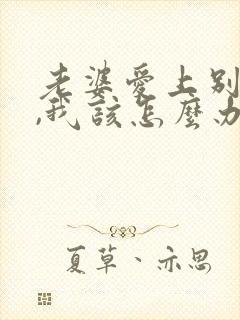 老婆愛上別
,我該怎麼办
夏草、亦思